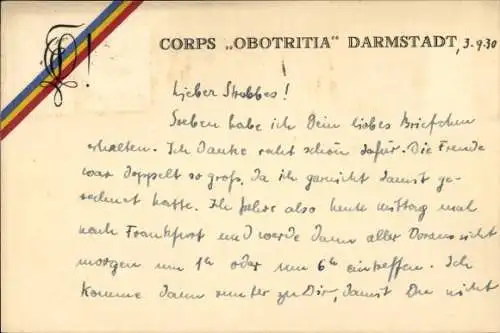 CORPS „OBOTRITIA“ DARMSTADT, 3.9.30
Lieber Strobbes!
Soeben habe ich Dein liebes Briefchen
erhalten. Ich danke recht schön dafür. Die Freude
war doppelt so groß, da ich garnicht damit ge-
rechnet hatte. Ich fahre also heute mittag mal
nach Frankfurt und werde dann aller Voraussicht
morgen um 1h oder um 6h eintreffen. Ich
komme dann runter zu Dir, damit Du nicht